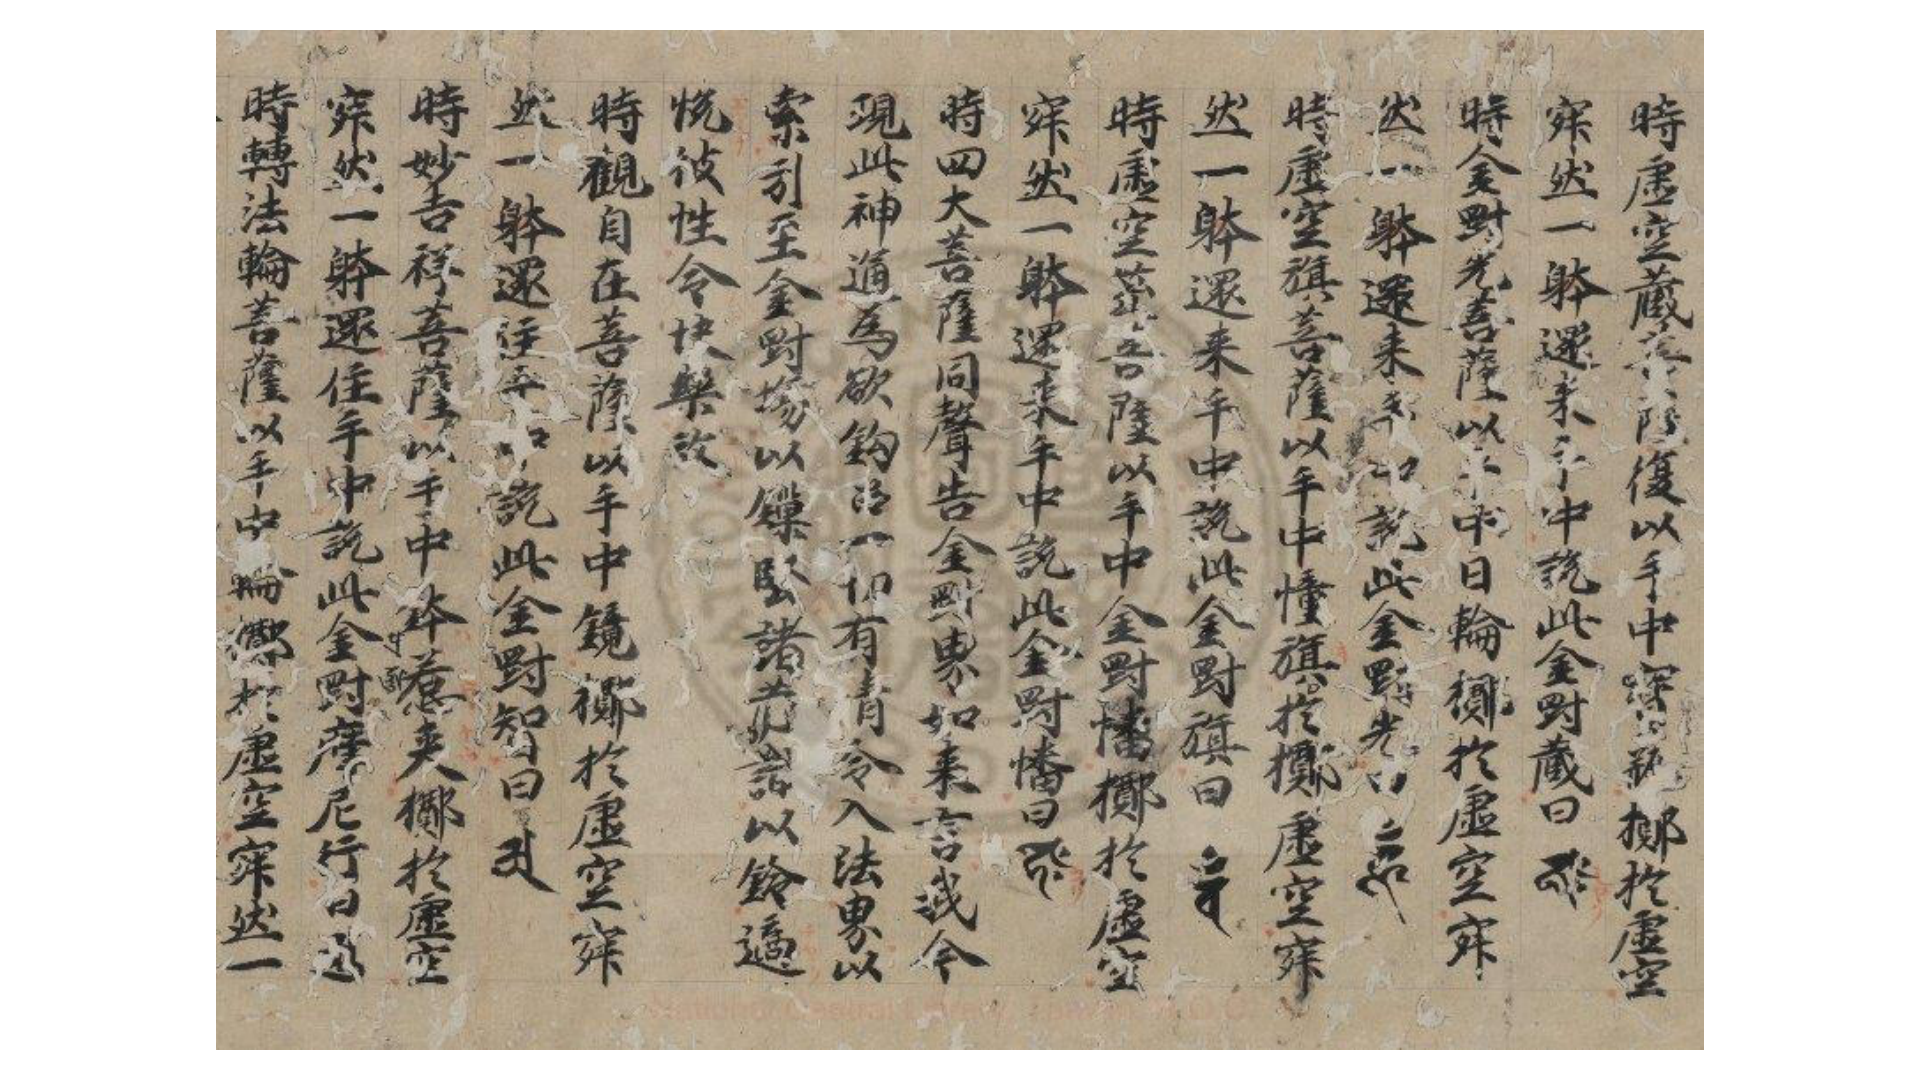 時虛空藏菩薩復以手中寶瓶擲於虛空
寂然一躰還来手中說此金對藏曰
時金對光菩薩以手中日輪擲於虛空寂
然一躰還来手中說此金對光曰
時虛空旗菩薩以手中幢旗於擲虛空寂
然一躰還来手中說此金對旗曰
時虛空菩薩以手中金對幡擲於虛空
寂然一躰還来手中說此金對幡曰
時四大菩薩同聲告金對界如来言我今
現此神通為欲鈎召一切有情令入法界以
索引至金對場以鏁堅諸以鈴適
悅彼性令快樂故
時觀自在菩薩以手中鏡擲於虛空寂
然一躰還住手中說此金對智曰
時妙吉祥菩薩以手中鉢惹夾擲於虛空
寂然一躰還住手中說此金對摩尼行曰
時轉法輪菩薩以手中輪擲於虛空寂然一